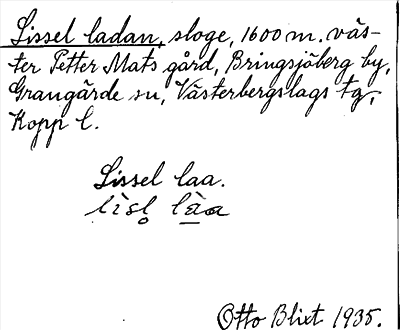 Lissel ladan, sloge, 1600 m. väs-
ter Petter Mats gård, Bringsjöberg by,
Grangärde sn, Västerbergslags tg,
Kopp l.
Lissel laa.
lìsl̥ là̱a
Otto Blixt 1935.